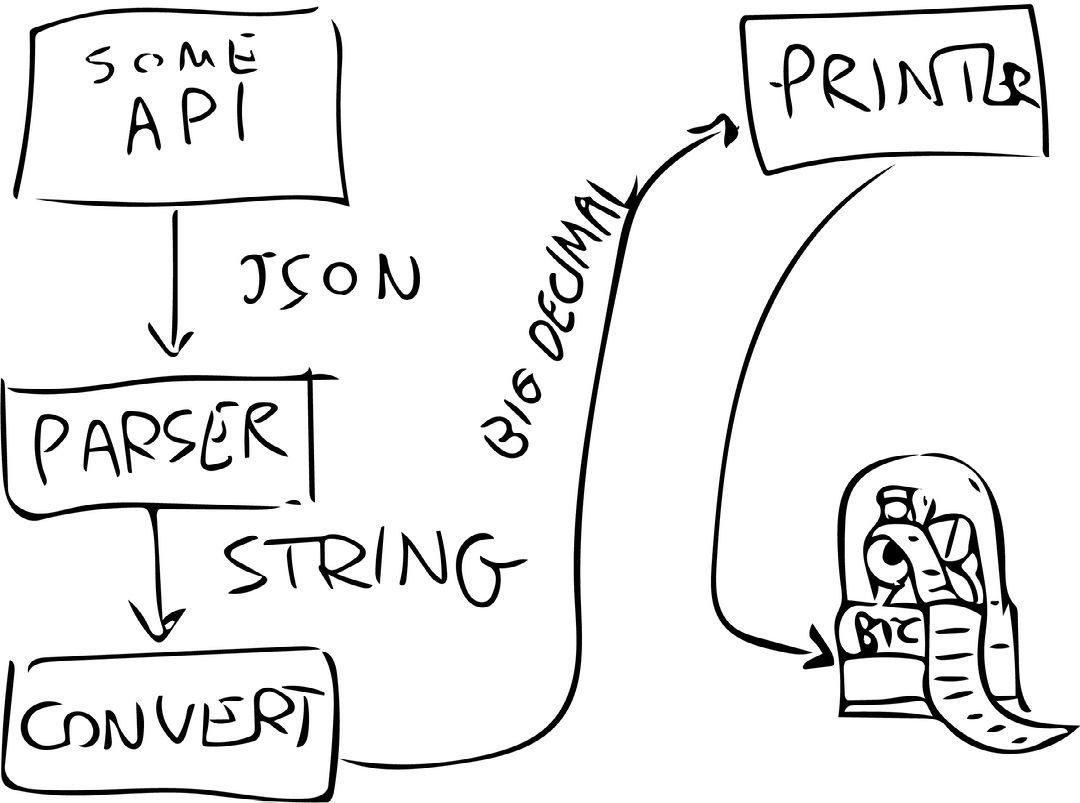 SOME
API
JSON
PARSER
STRING
CONVERT
BIG DECIMAL
PRINTER
BTC